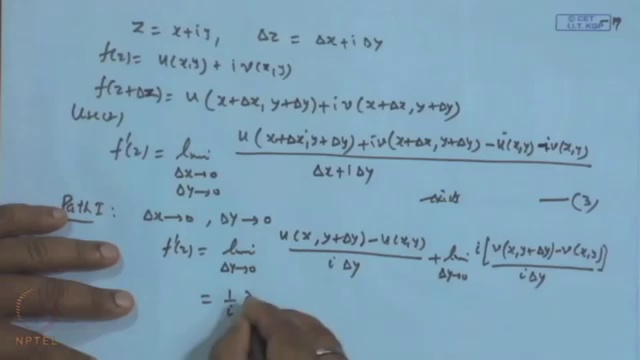 z = x+iy, Δz = Δx+iΔy
© CET
I.I.T. KGP
f(z) = u(x,y) + i v(x,y)
f(z+Δz) = u(x+Δx, y+Δy) + i v(x+Δx, y+Δy)
f'(z) = lim Δx→0 Δy→0 u(x+Δx, y+Δy) + iv(x+Δx, y+Δy) - u(x,y) - iv(x,y) / Δx+iΔy
exists —(3)
Path I: Δx→0, Δy→0
f'(z) = lim Δy→0 u(x, y+Δy) - u(x,y) / iΔy + lim Δy→0 i[v(x,y+Δy) - v(x,y)] / iΔy
= 1/i
NPTEL